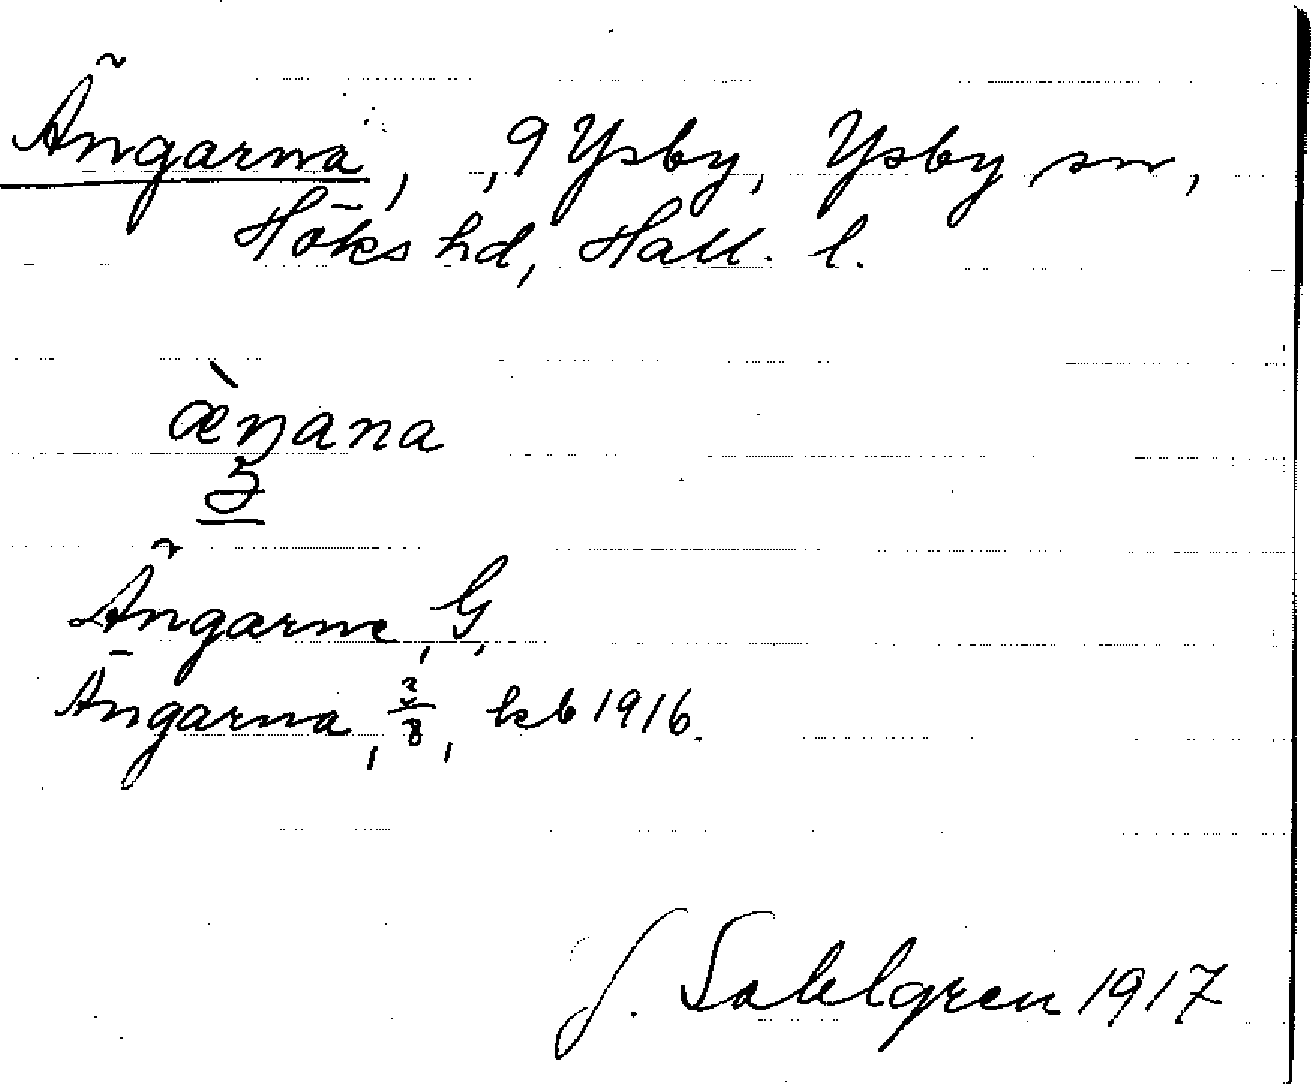 Ängarna, , 9 Ysby, Ysby sn,
Höks hd, Hall. l.
æ̀ŋana
3
Ängarne, G,
Ängarna, 2/8, kb 1916.
J. Sahlgren 1917